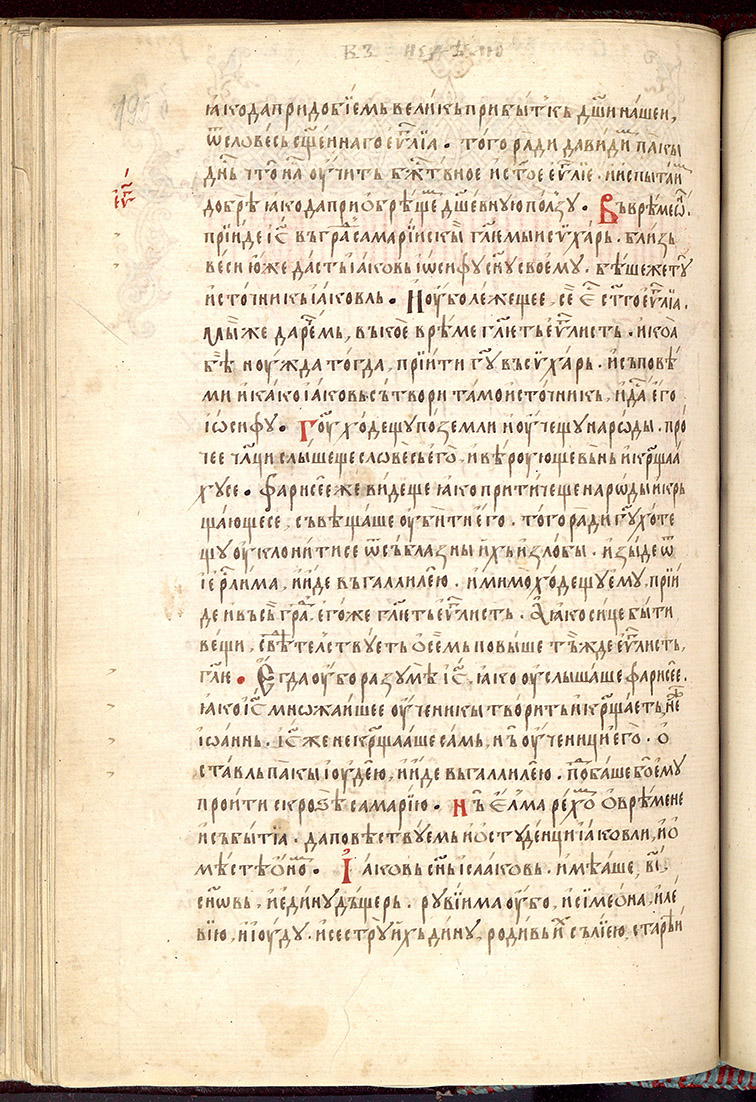 въ з неделю
195б
ꙗкода придобїемь великь прибытѡкь дш҃и нашеи,
ѿсловесь сщ҃еннаго еѵⷢ҇лїа . того ради да видиⷨ пакы
дн҃ь что на оучить бжⷭ҇твное и ст҃ое еѵⷢ҇лїе . и испытаиⷨ
еѵⷢ҇
добрѣ ꙗкода при ѡбрѣщеⷨ дш҃евную ползу . Въ врѣме ѡⷩ҇.
прїиде іс҃ въ граⷣ самарїискы гл҃емыи сѵхарь . близь
веси юже дасть іаковь іѡсифу сн҃у своему . бѣше же ту
источникь іаковль . И оубо лежещее се есⷭ҇ ст҃го еѵⷢ҇лїа.
мы же дарⷥемь, въ кое врѣме гл҃еть еѵⷢ҇листь . и коа
бѣ ноужда тогда, прїити гу҃ въ сѵхарь . и съповѣ
ми и како іаковь сътвори тамо источникь, и даⷭ его
іѡсифу . Гоу҃ ходещу по земли и оучещу народы . про
чее чл҃ци слышеще словесь его, и вѣроующе вънь и кр҃щаа
хусе . фарисее же видеще ꙗко притичеще народы и кр҃ь
щающесе, съвѣщаше оубити его . того ради гу҃ хоте
щу оуклонитисе ѿ съблазны ихь и злобы . изыде ѿ
іерⷭ҇лима, и иде въ галлилею . и мимоходещу ему, прїи
де и въсь граⷣ, егоже гл҃еть еѵⷢ҇листь . А ꙗко сице быти
вещи, свⷣѣтелствуеть о семь повыше тъжде еѵⷢ҇листь,
гл҃ю . Егда оубо разумѣ іс҃, ꙗко оуслышаше фарисее.
ꙗко іс҃ множаишее оученикы творить и кр҃щаеть, неⷤ
іѡаннь . іс҃ же не кр҃щааше самь, нъ оученици его . ѡ
ставль пакы іоудею, и иде въ галлилею . поⷣбаше бо ему
проити скрозѣ самарїю . Нъ елма рехоⷨ о врѣмене
и събытїа . да повѣствуемь и о студенци іаковли, и о
мѣстѣ ономⷨ . Іаковь сн҃ь ісааковь . имѣаше, в҃і.
сн҃овь, и едину дъщерь . рувїима оубо, и сїмеѡна, и ле
вїю, и іоуду . и сестру ихь дину, родивыиⷯ съ лїею, старѣи